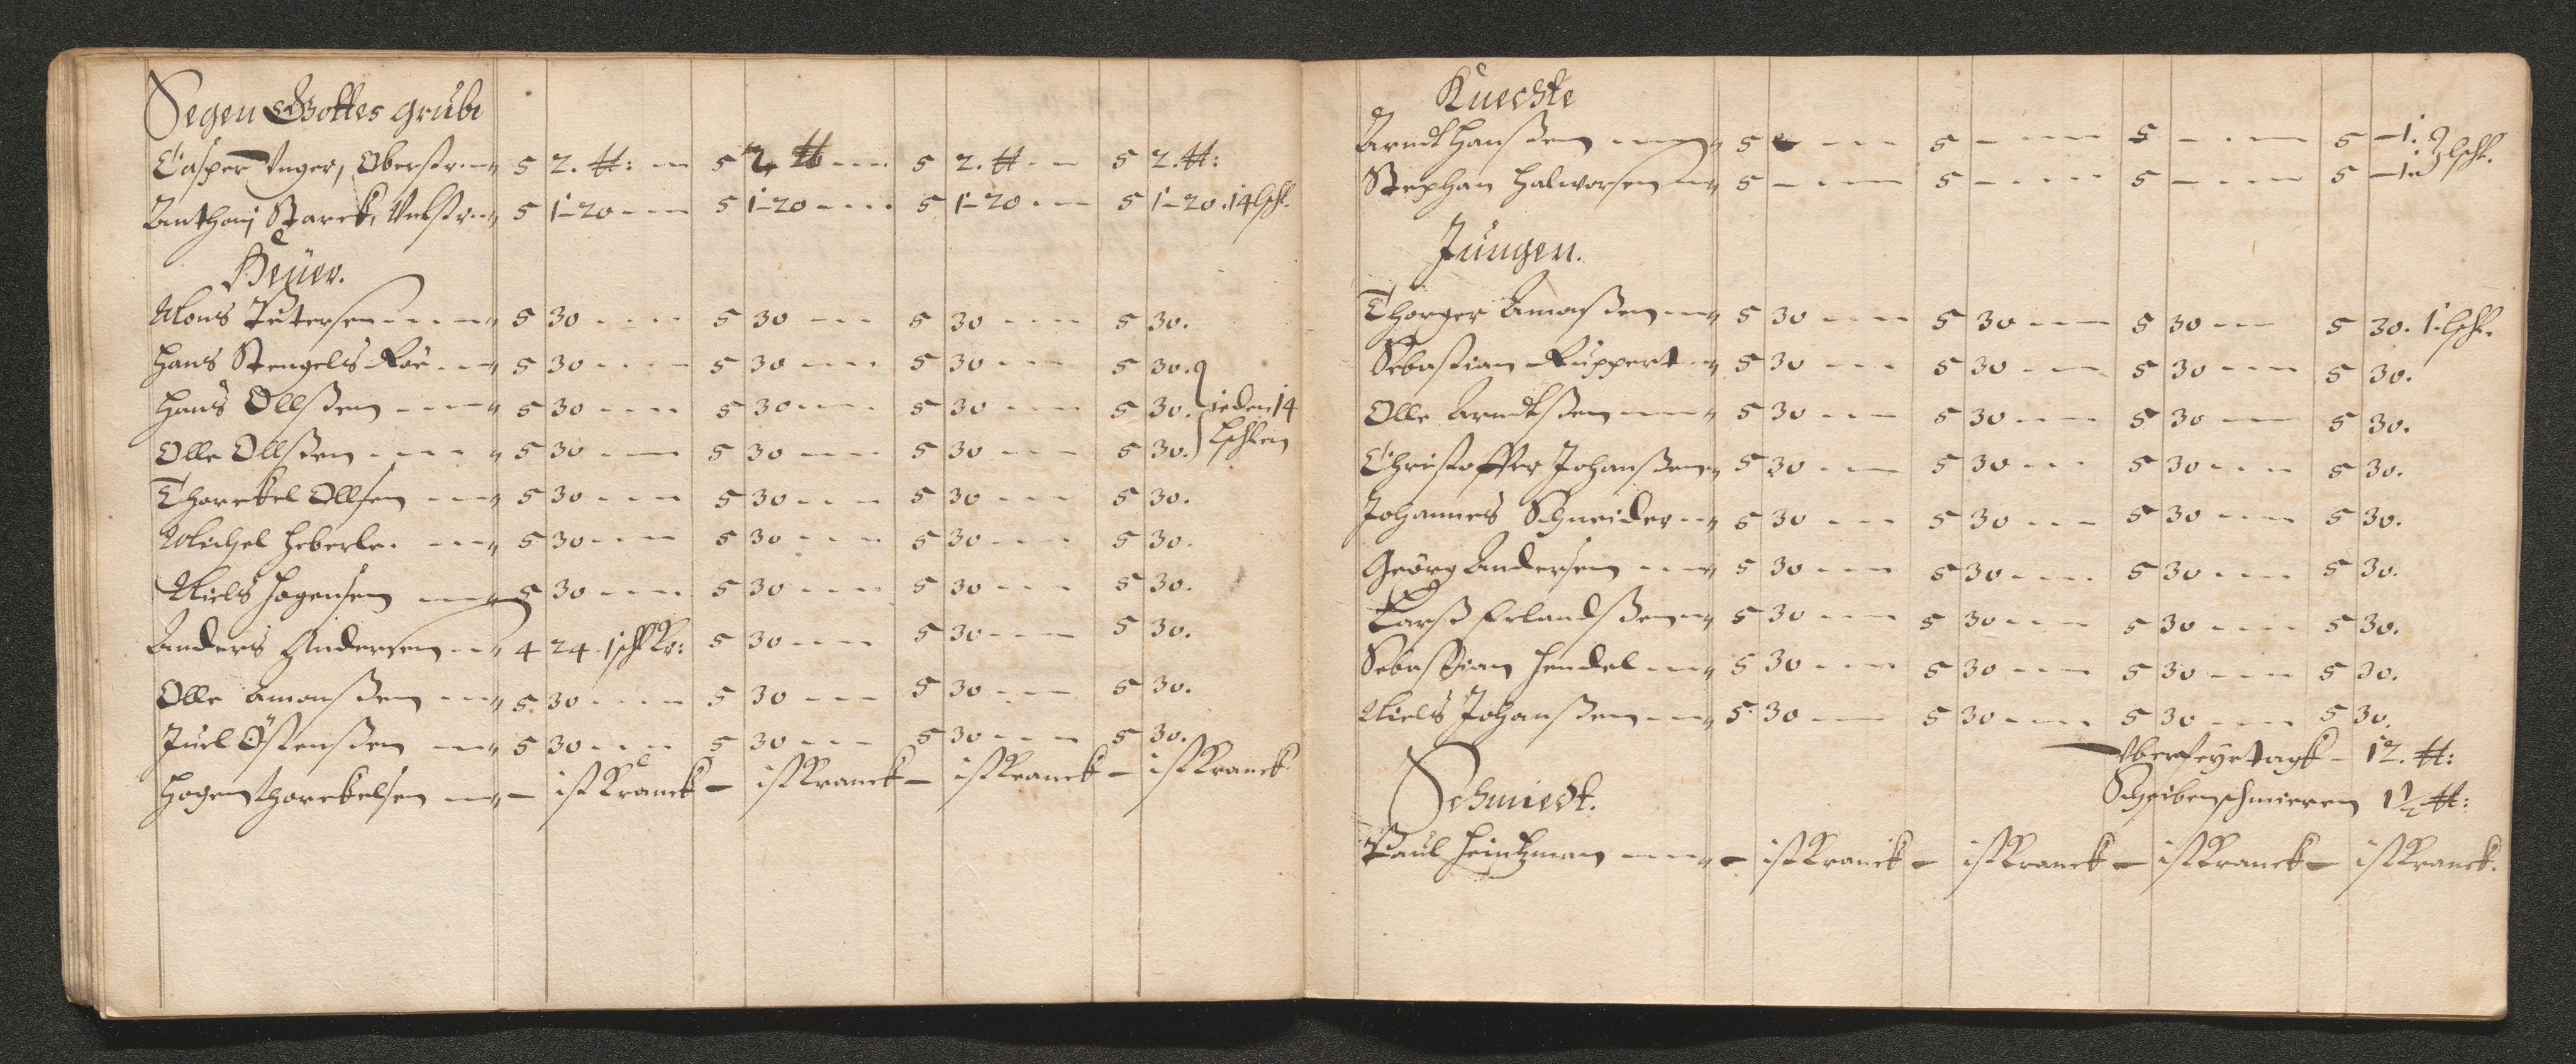 Segen Gottes Grube
Casper Unger, Oberstr. 5 2. ₶: 5 2 ₶ 5 2. ₶ 5 2. ₶:
Anthonj Starck, 5 1-20 5 1-20 5 1-20 5 1-20. 14 lschl.
Heüer.
Mons Petersen 5 30 5 30 5 30 5 30.
Hans Stengels 5 30 5 30 5 30 5 30.
Hans Ollßen 5 30 5 30 5 30 5 30. ieden 14
Olle Ollßen 5 30 5 30 5 30 5 30. lschl.
Thorckel Ollsen 5 30 5 30 5 30 5 30.
Michel Heberle. 5 30 5 30 5 30 5 30.
Niels Hogensen 5 30 5 30 5 30 5 30.
Anders Andersen 4 24. 1 schl 5 30 5 30 5 30.
Olle Amonßen 5 30 5 30 5 30 5 30.
Juel Östenßen 5 30 5 30 5 30 5 30.
Hogen Thorckelsen – ist Kranck – ist Kranck – ist Kranck – ist Kranck
Knechte
Arndt Hanßen 5 – 5 – 5 – 5 – 1.
Stephan Halworsen 5 – 5 – 5 – 5 – 1. lschl.
Jungen.
Thorger Amonßen 5 30 5 30 5 30 5 30. 1. lschl.
Sebastian Ruppert 5 30 5 30 5 30 5 30.
Olle Arndtßen 5 30 5 30 5 30 5 30.
Christoffer Johanßen 5 30 5 30 5 30 5 30.
Johannes Schneider 5 30 5 30 5 30 5 30.
Georg Andersen 5 30 5 30 5 30 5 30.
Larß Erlandßen 5 30 5 30 5 30 5 30.
Sebastian Hendel 5 30 5 30 5 30 5 30.
Niels Johanßen 5 30 5 30 5 30 5 30.
Uberfeyrtagk – 12. ₶:
Schmiedt.
Scheibenschmieren 1½ ₶:
Paul Heintzman – ist Kranck – ist Kranck – ist Kranck – ist Kranck.